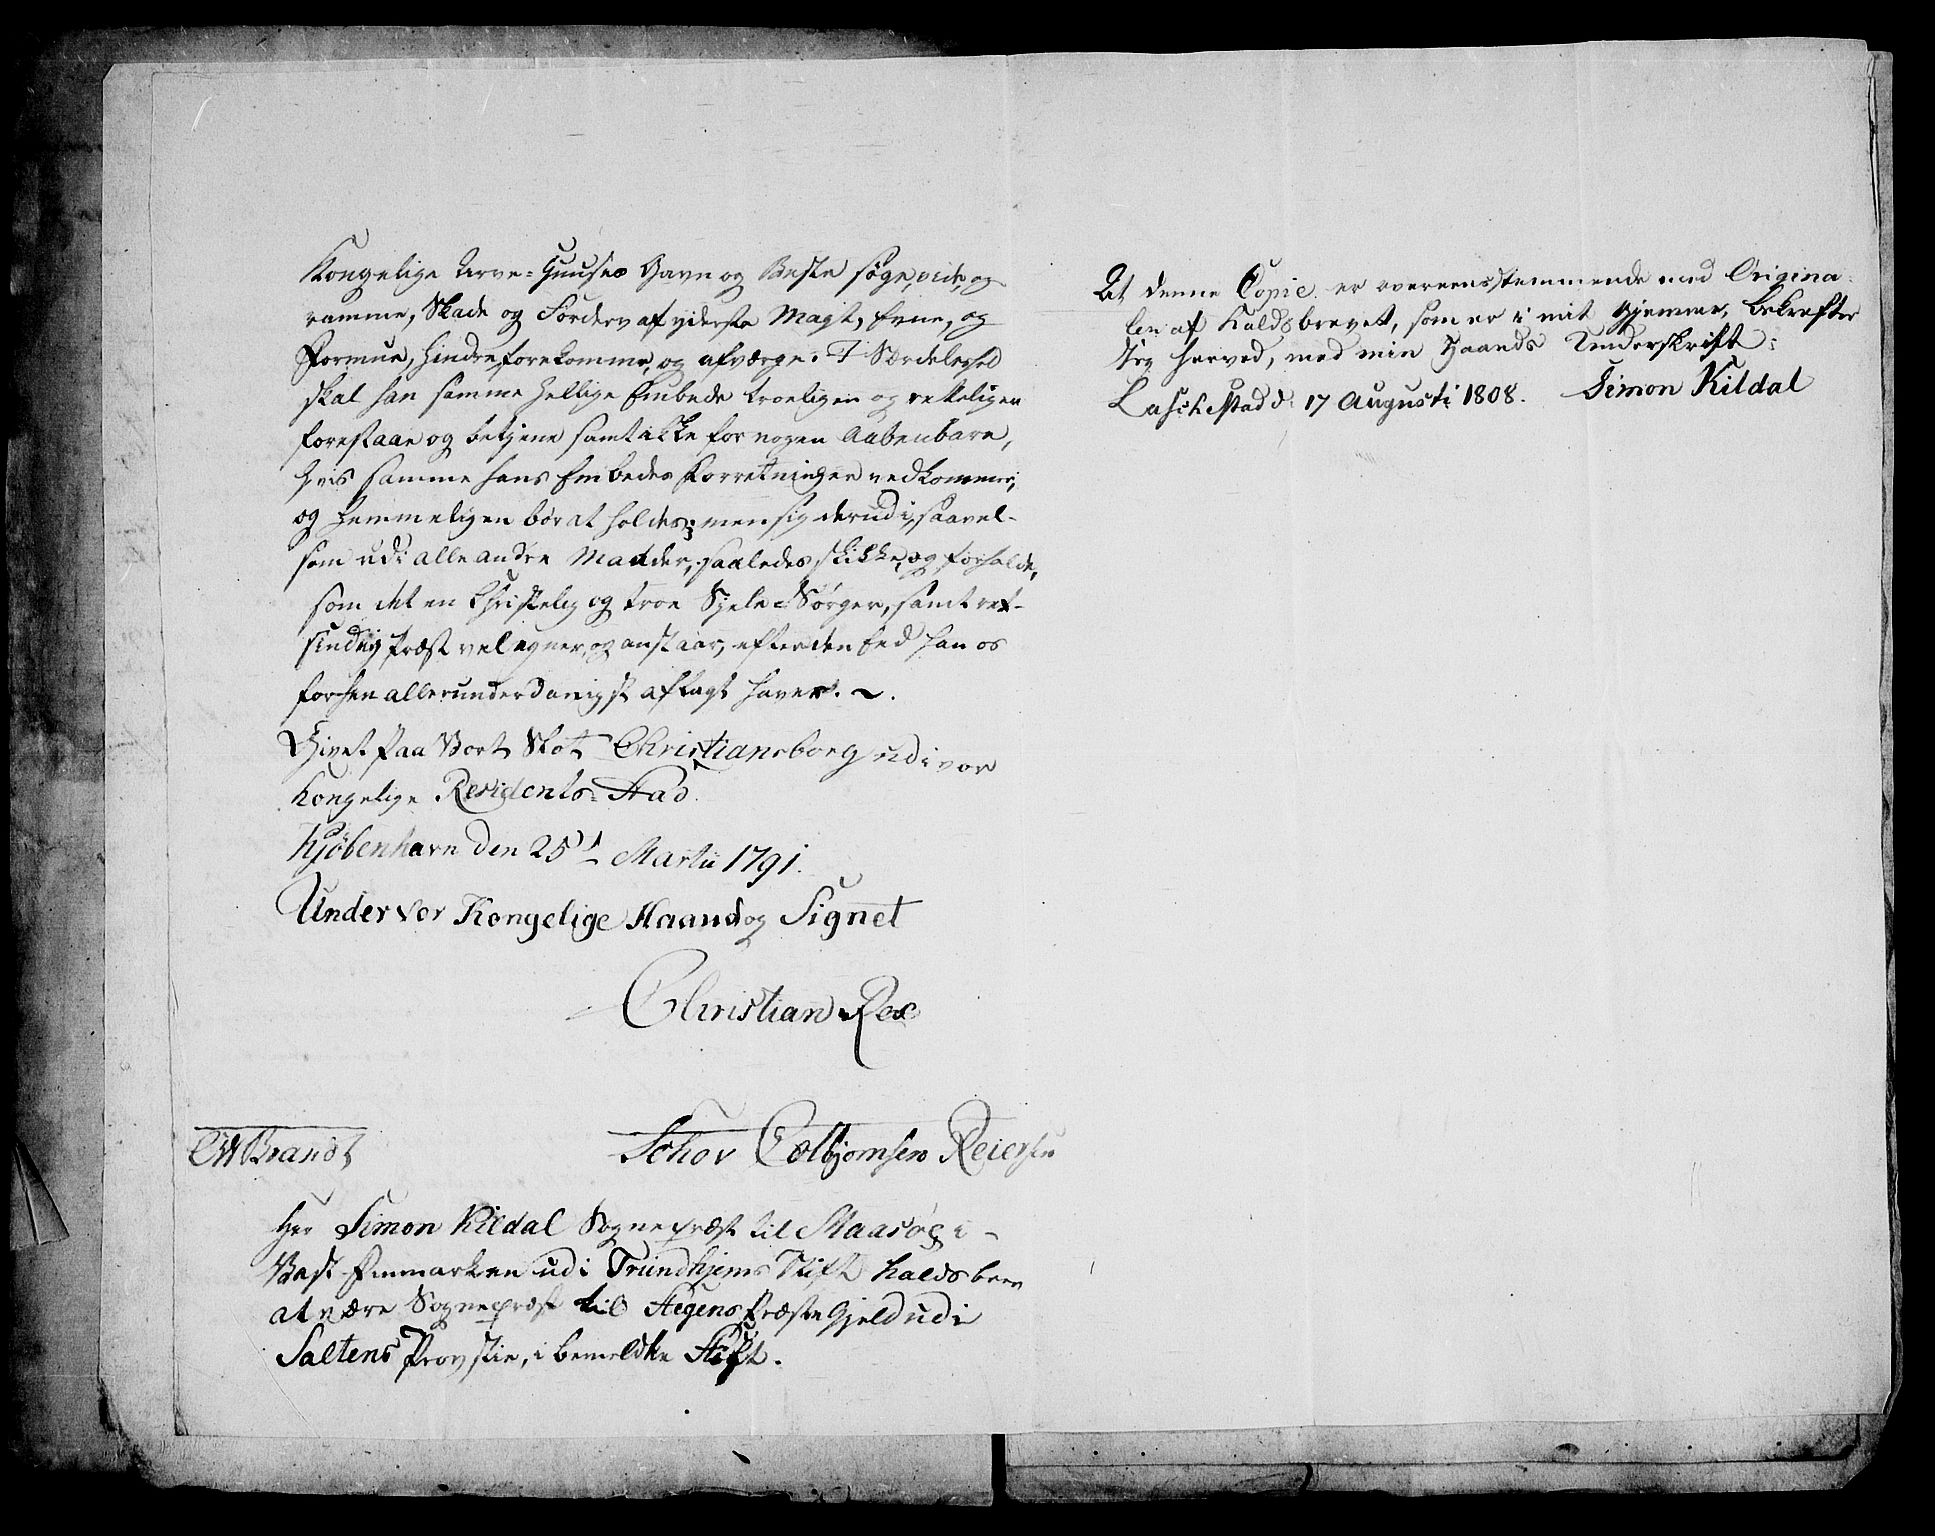 Kongelige Arve-Huuses Gavn og Beste søge, vide, og
ramme, Skade og Forderv af yderste Magt, Evne, og
Formue, hindre, forekomme, og afværge. I Særdeleshed
skal han samme hellige Embede troeligen og retteligen
forestaae og betjene samt ikke for nogen Aabenbare,
hvis samme hans Embedes Forretninger vedkommer,
og hemmeligen bør at holdes; men sig derudi, saavel-
som udi alle andre Maader, saaledes skikke, og forholde,
som det en Christelig og troe Sjele-Sørger, samt ret-
sindig Præst vel egner, og anstaar, efter den Eed han os
forhen allerunderdanigst aflagt haver.
Givet paa Vort Slot Christiansborg udi vor
Kongelige Residents-Stad
Kjöbenhavn den 25de Martii 1791.
Under vor Kongelige Haand og Signet
Christian Rex
CW Brandt
Schov Colbjornsen Reiersen
Her Simon Kildal Sognepræst til Maasöe i
Vest-Finmarken udi Trundhjems Stift Kaldsbrev
at være Sognepræst til Stegens Præste Gjeld udi
Saltens Provstie, i bemeldte Stift.
At denne Copie er overeensstemmende med Origina-
len af Kaldsbrevet, som er i mit Gjemme, bekræfter
jeg herved, med min Haands Underskrift:
d: 17 Augusti 1808. Simon Kildal